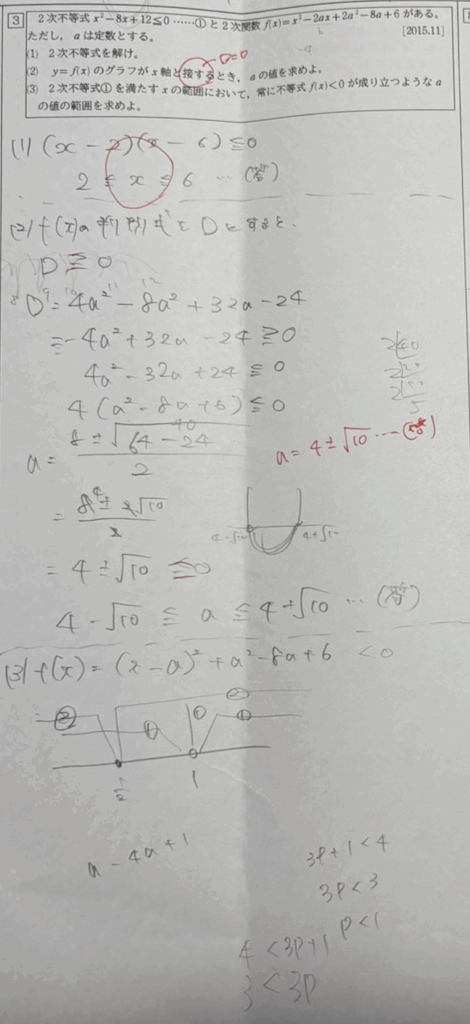 3 2次不等式 x²−8x+12≦0 ……① と2次関数 f(x)=x²−2ax+2a²−8a+6 がある。
ただし，aは定数とする。 [2015.11]
(1) 2次不等式を解け。
(2) y=f(x) のグラフが x軸と接するとき，aの値を求めよ。
D=0
(3) 2次不等式①を満たすxの範囲において，常に不等式 f(x)<0 が成り立つようなa
の値の範囲を求めよ。
(1) (x−2)(x−6)≦0
2≦x≦6 … (答)
(2) f(x)の判別式をDとすると、
D≧0
D=4a²−8a²+32a−24
=−4a²+32a−24≧0
4a²−32a+24≦0
4(a²−8a+6)≦0
a=8±√64−24/2
40
a=4±√10 …(答)
2)40
2)20
2)10
5
=8±2√10/2
4−√10 4+√10
=4±√10≦0
4−√10≦a≦4+√10 …(答)
(3) f(x)=(x−a)²+a²−8a+6 <0
② ② ① ① ①
1/2 1
a−4a+1
3p+1<4
3p<3
p<1
4<3p+1
3<3p